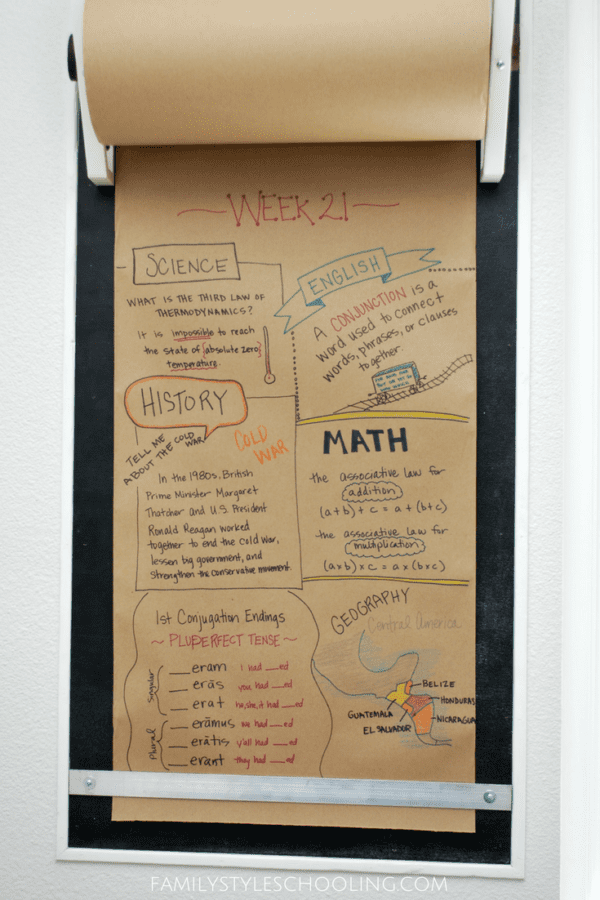 WEEK 21
SCIENCE
WHAT IS THE THIRD LAW OF
THERMODYNAMICS?
It is impossible to reach
the state of {absolute zero}
temperature.
ENGLISH
A CONJUNCTION is a
word used to connect
words, phrases, or clauses
together.
HISTORY
TELL ME
ABOUT THE COLD
WAR
COLD
WAR
In the 1980s, British
Prime Minister Margaret
Thatcher and U.S. President
Ronald Reagan worked
together to end the Cold War,
lessen big government, and
strengthen the conservative movement.
MATH
the associative law for
addition
(a+b)+c = a+(b+c)
the associative law for
multiplication
(axb)xc = ax(bxc)
1st Conjugation Endings
~ PLUPERFECT TENSE ~
Singular
__eram I had __ed
__erās you had __ed
__erat he, she, it had __ed
Plural
__erāmus we had __ed
__erātis y'all had __ed
__erant they had __ed
GEOGRAPHY
Central America
BELIZE
HONDURAS
GUATEMALA
NICARAGUA
EL SALVADOR
FAMILYSTYLESCHOOLING.COM